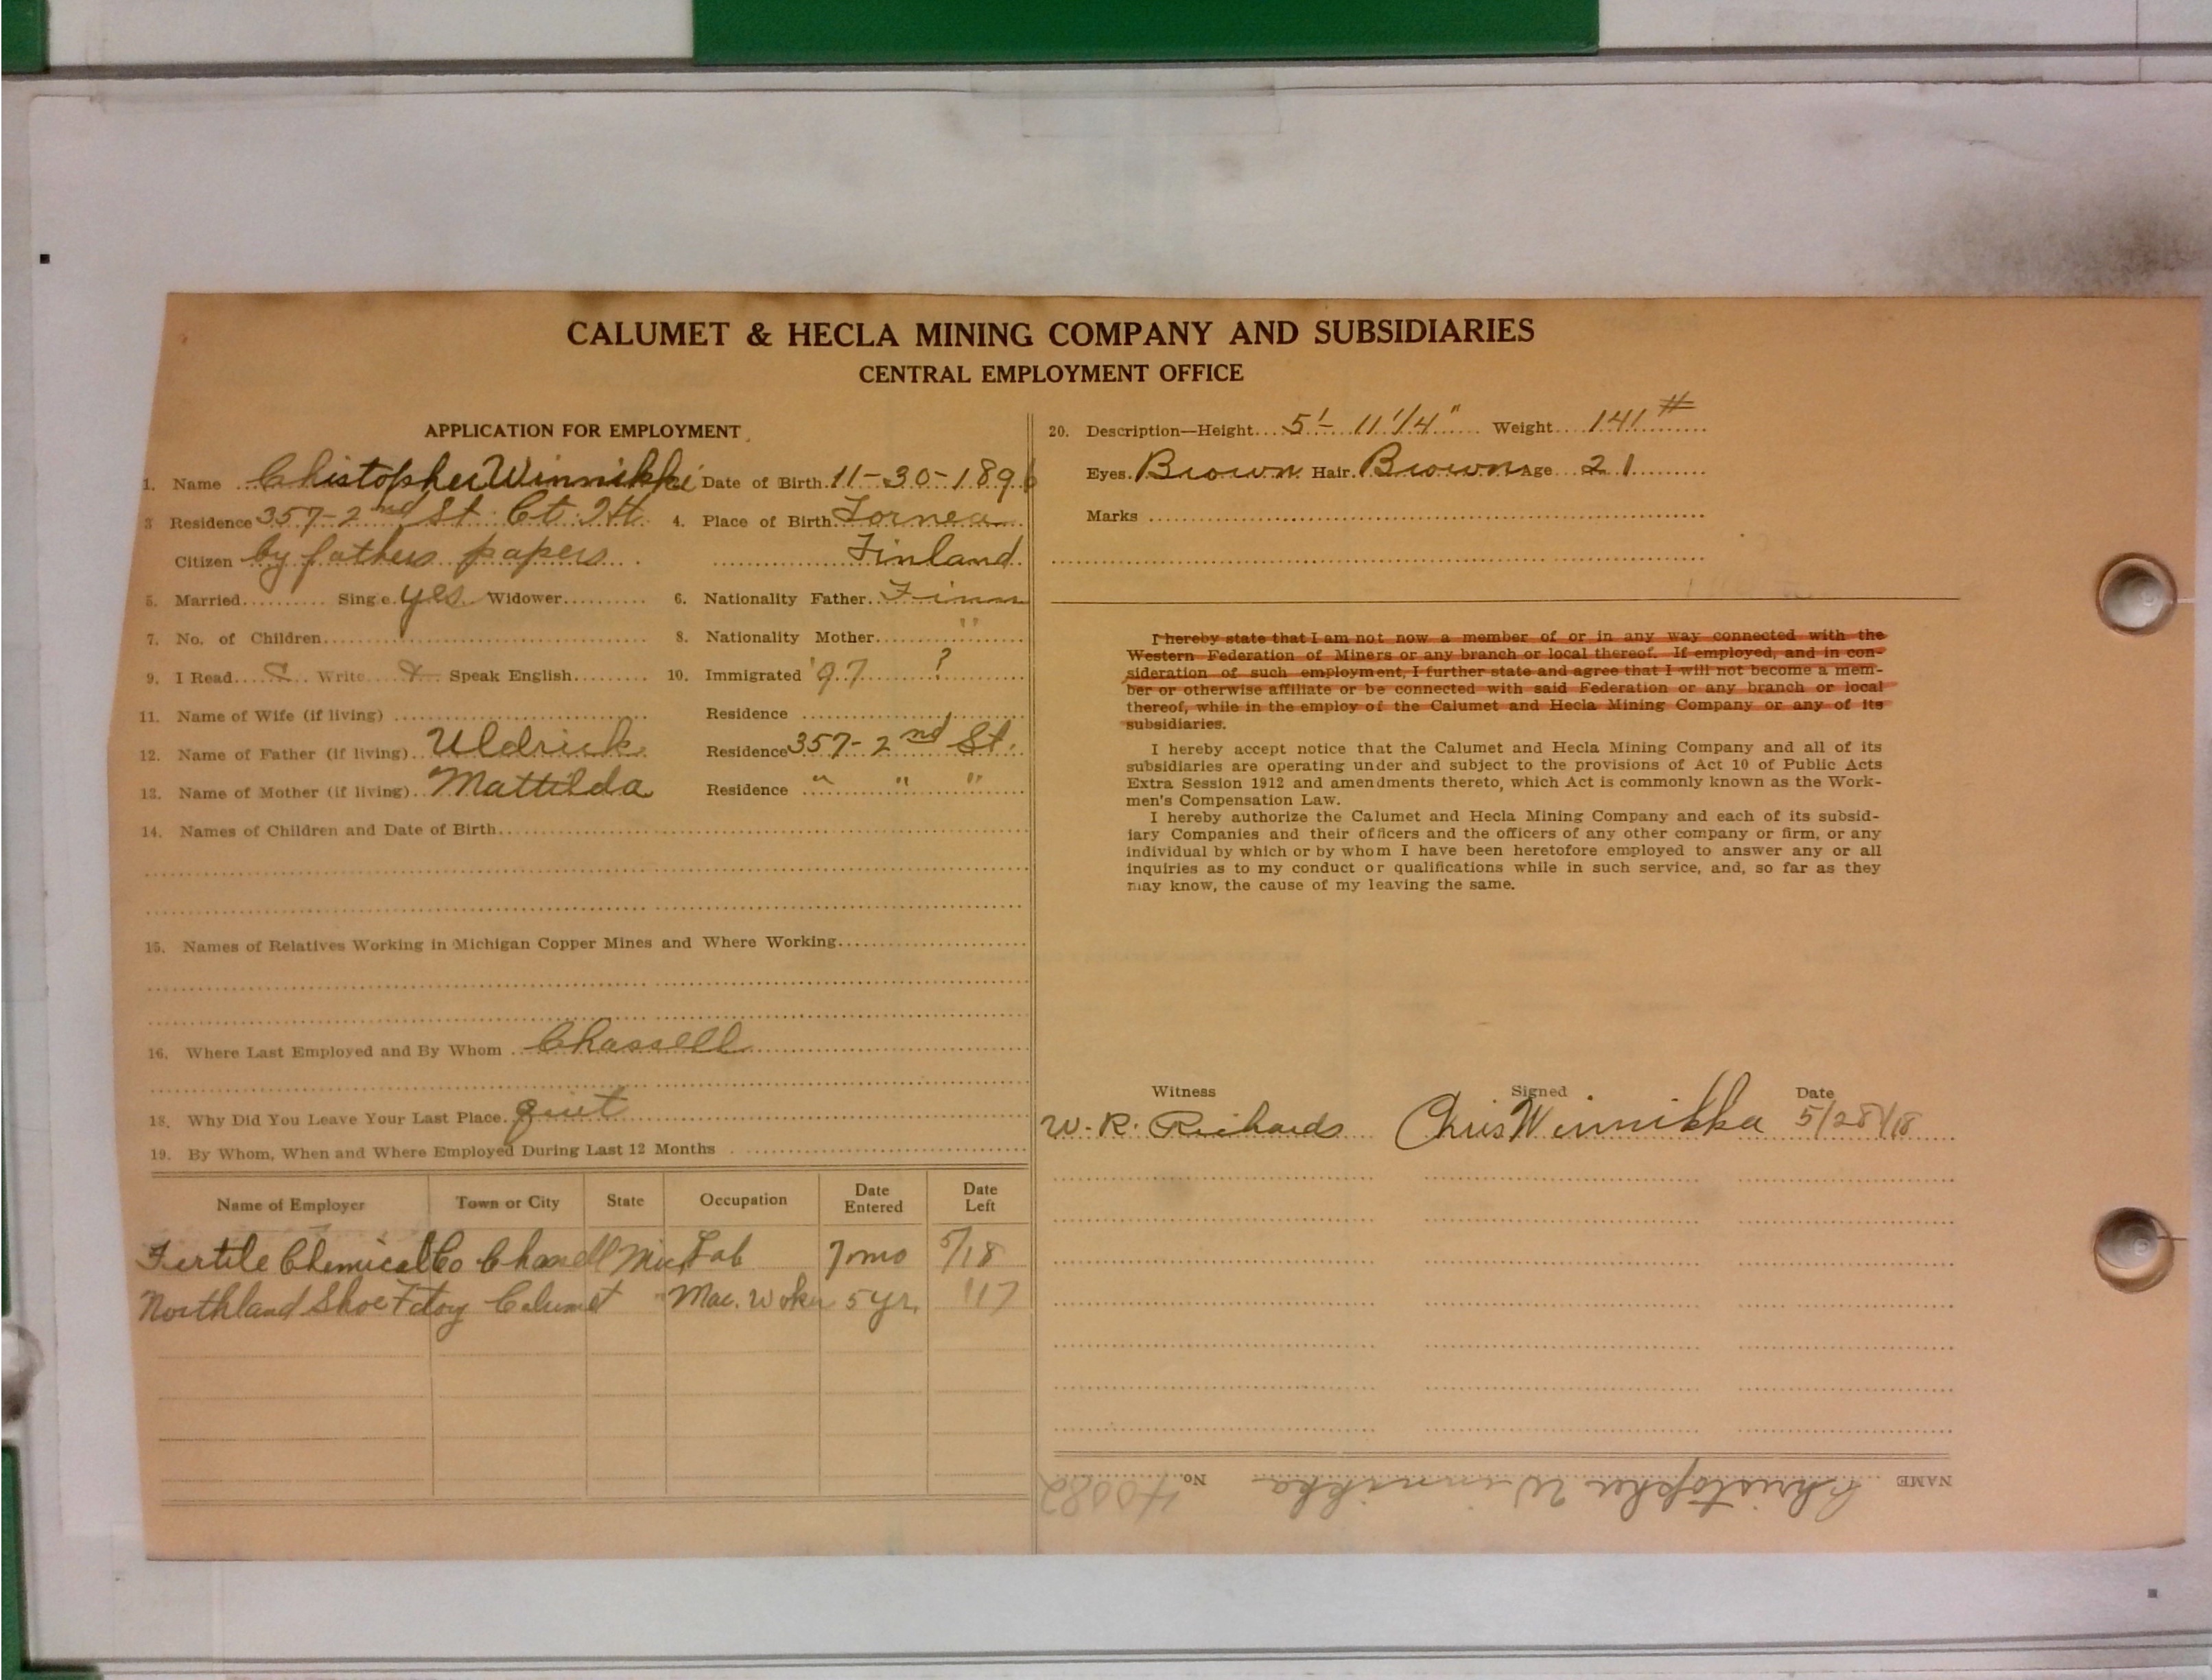 CALUMET & HECLA MINING COMPANY AND SUBSIDIARIES
CENTRAL EMPLOYMENT OFFICE
APPLICATION FOR EMPLOYMENT
1. Name Chistopher Winnikki Date of Birth 11-30-1896
3 Residence 357-2nd St. 4. Place of Birth Tornea
Citizen by fathers papers Finland
5. Married Single yes Widower 6. Nationality Father Finn
7. No. of Children 8. Nationality Mother "
9. I Read Write Speak English 10. Immigrated '97 ?
11. Name of Wife (if living) Residence
12. Name of Father (if living) Uldrick Residence 357-2nd St.
13. Name of Mother (if living) Mattilda Residence " " "
14. Names of Children and Date of Birth
15. Names of Relatives Working in Michigan Copper Mines and Where Working
16. Where Last Employed and By Whom Chassell
18. Why Did You Leave Your Last Place. quit
19. By Whom, When and Where Employed During Last 12 Months
Name of Employer Town or City State Occupation Date Entered Date Left
Fertile Chemical Co Chassell Mich Lab 7 mo 5/18
Northland Shoe Fctoy Calumet " Mac. Woker 5 yr. '17
20. Description—Height 5'- 11 1/4" Weight 141 #
Eyes Brown Hair Brown Age 21
Marks
I hereby state that I am not now a member of or in any way connected with the
Western Federation of Miners or any branch or local thereof. If employed, and in con-
sideration of such employment, I further state and agree that I will not become a mem-
ber or otherwise affiliate or be connected with said Federation or any branch or local
thereof, while in the employ of the Calumet and Hecla Mining Company or any of its
subsidiaries.
I hereby accept notice that the Calumet and Hecla Mining Company and all of its
subsidiaries are operating under and subject to the provisions of Act 10 of Public Acts
Extra Session 1912 and amendments thereto, which Act is commonly known as the Work-
men's Compensation Law.
I hereby authorize the Calumet and Hecla Mining Company and each of its subsid-
iary Companies and their officers and the officers of any other company or firm, or any
individual by which or by whom I have been heretofore employed to answer any or all
inquiries as to my conduct or qualifications while in such service, and, so far as they
may know, the cause of my leaving the same.
Witness Signed Date
W. R. Richards Chris Winnikka 5/28/18
NAME Christopher Winnikka No. 40082